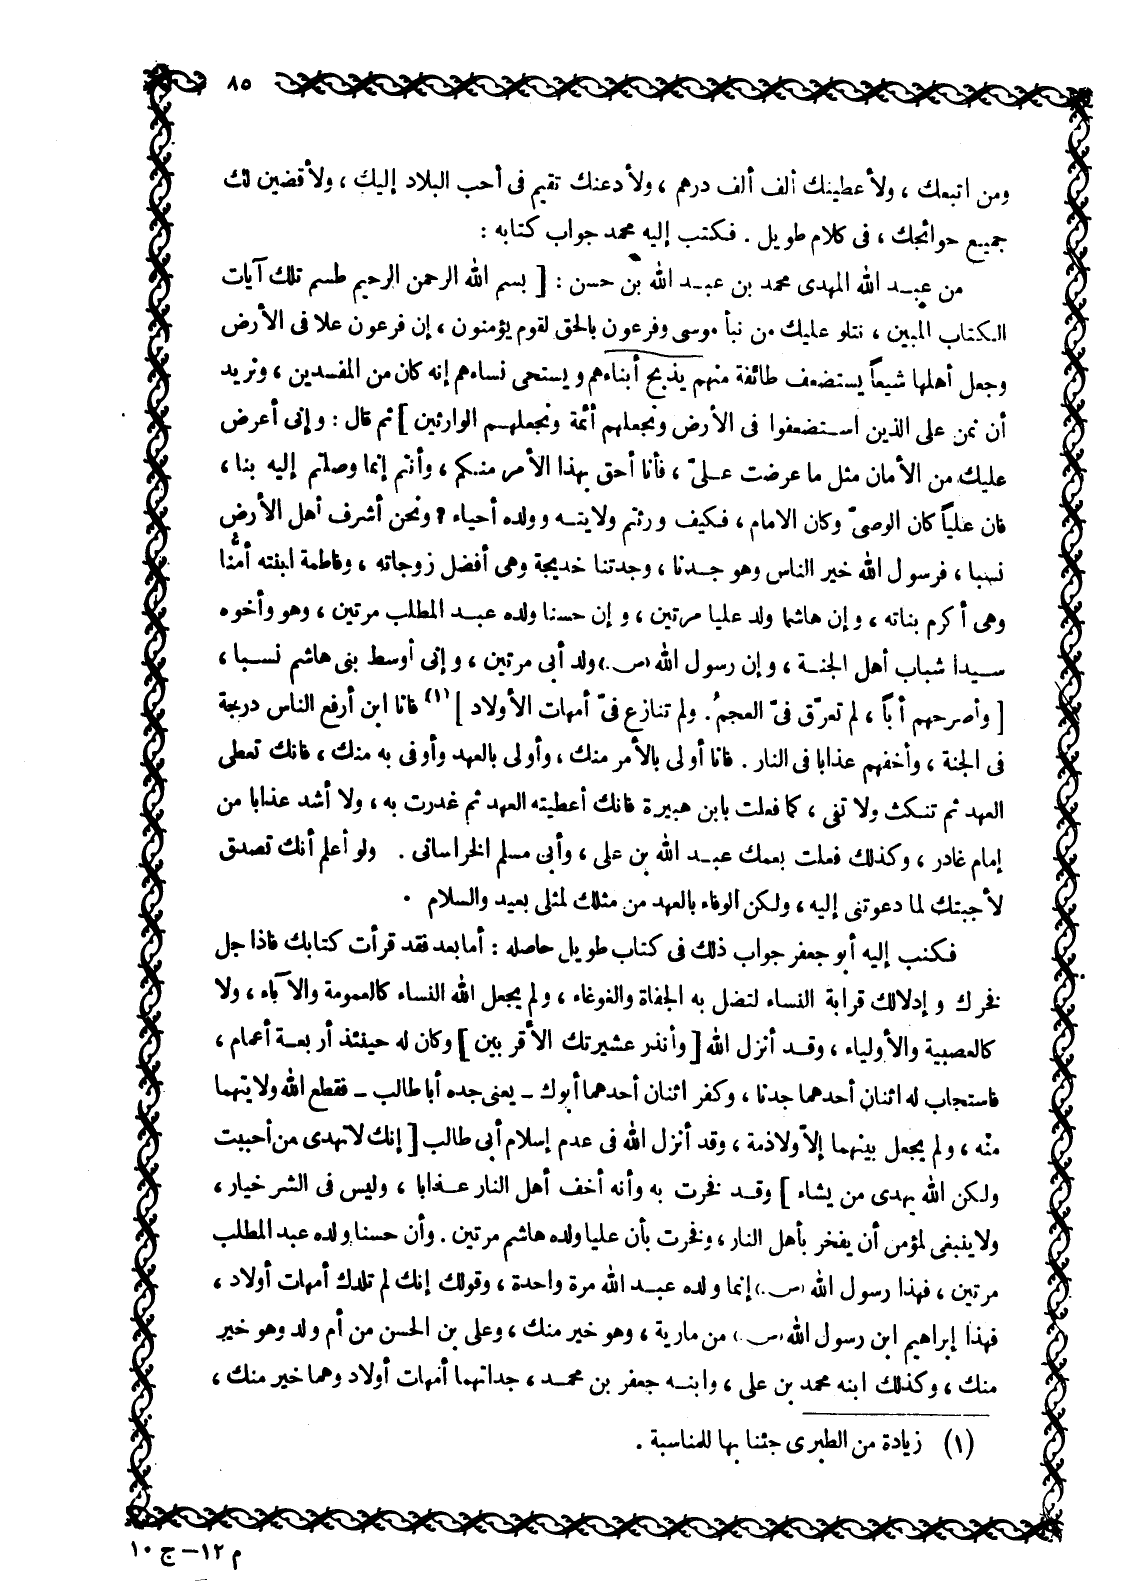 ٨٥
ومن اتبعك ، ولأعطينك ألف ألف درهم ، ولأدعنك تقيم فى أحب البلاد إليك ، ولأقضين لك
جميع حوائجك ، فى كلام طويل . فكتب إليه محمد جواب كتابه :
من عبد الله المهدى محمد بن عبد الله بن حسن : [ بسم الله الرحمن الرحيم طسم تلك آيات
الكتاب المبين ، نتلو عليك من نبأ موسى وفرعون بالحق لقوم يؤمنون ، إن فرعون علا فى الأرض
وجعل أهلها شيعاً يستضعف طائفة منهم يذبح أبناءهم ويستحى نساءهم إنه كان من المفسدين ، ونريد
أن نمن على الذين استضعفوا فى الأرض ونجعلهم أئمة ونجعلهم الوارثين ] ثم قال : وإنى أعرض
عليك من الأمان مثل ما عرضت علىّ ، فأنا أحق بهذا الأمر منكم ، وأنتم إنما وصلتم إليه بنا ،
فان علياً كان الوصىّ وكان الامام ، فكيف ورثتم ولايته وولده أحياء ؟ ونحن أشرف أهل الأرض
نسبا ، فرسول الله خير الناس وهو جدنا ، وجدتنا خديجة وهى أفضل زوجاته ، وفاطمة ابنته أمُّنا
وهى أكرم بناته ، وإن هاشما ولد عليا مرتين ، وإن حسنا ولده عبد المطلب مرتين ، وهو وأخوه
سيدا شباب أهل الجنة ، وإن رسول الله (ص.) ولد أبى مرتين ، وإنى أوسط بنى هاشم نسبا ،
[ وأصرحهم أباً ، لم تعرّق فىّ العجمُ . ولم تنازع فىّ أمهات الأولاد ] (١) فانا ابن أرفع الناس درجة
فى الجنة ، وأخفهم عذابا فى النار . فانا أولى بالأمر منك ، وأولى بالعهد وأوفى به منك ، فانك تعطى
العهد ثم تنكث ولا تفى ، كما فعلت بابن هبيرة فانك أعطيته العهد ثم غدرت به ، ولا أشد عذابا من
إمام غادر ، وكذلك فعلت بعمك عبد الله بن على ، وأبى مسلم الخراسانى . ولو أعلم أنك تصدق
لأجبتك لما دعوتنى إليه ، ولكن الوفاء بالعهد من مثلك لمثلى بعيد والسلام .
فكتب إليه أبو جعفر جواب ذلك فى كتاب طويل حاصله : أما بعد فقد قرأت كتابك فاذا جل
فخرك وإدلالك قرابة النساء لتضل به الجفاة والغوغاء ، ولم يجعل الله النساء كالعمومة والآباء ، ولا
كالعصبية والأولياء ، وقد أنزل الله [ وأنذر عشيرتك الأقربين ] وكان له حينئذ أربعة أعمام ،
فاستجاب له اثنان أحدهما جدنا ، وكفر اثنان أحدهما أبوك - يعنى جده أبا طالب - فقطع الله ولايتهما
منه ، ولم يجعل بينهما إلاّ ولا ذمة ، وقد أنزل الله فى عدم إسلام أبى طالب [ إنك لا تهدى من أحببت
ولكن الله يهدى من يشاء ] وقد فخرت به وأنه أخف أهل النار عذابا ، وليس فى الشر خيار ،
ولا ينبغى لمؤمن أن يفخر بأهل النار ، وفخرت بأن عليا ولده هاشم مرتين . وأن حسنا ولده عبد المطلب
مرتين ، فهذا رسول الله (ص.) إنما ولده عبد الله مرة واحدة ، وقولك إنك لم تلدك أمهات أولاد ،
فهذا إبراهيم ابن رسول الله (ص.) من مارية ، وهو خير منك ، وعلى بن الحسن من أم ولد وهو خير
منك ، وكذلك ابنه محمد بن على ، وابنه جعفر بن محمد ، جداتهما أمهات أولاد وهما خير منك ،
(١) زيادة من الطبرى جئنا بها للمناسبة .
م ١٢ - ج ١٠